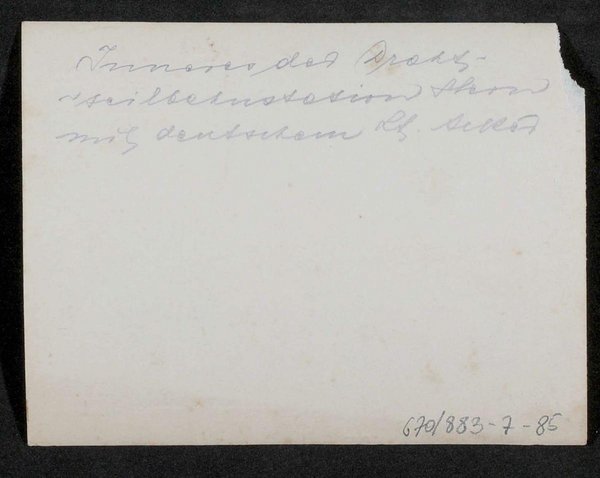 Inneres der Draht-
seilbahnstation
mit deutschem Lt.
670/883-7-85